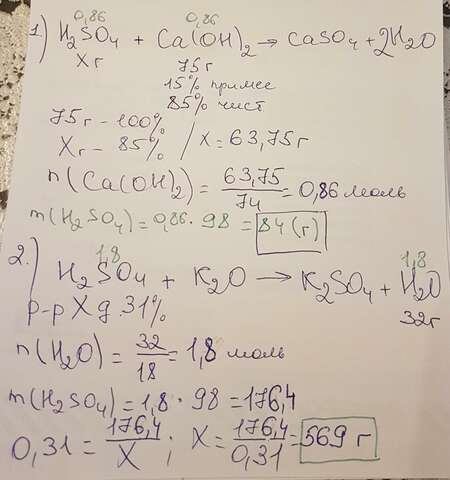 0,86 0,86
1.) H₂SO₄ + Ca(OH)₂ → CaSO₄ + 2H₂O
Xг 75г
15% примес
85% чист
75г - 100%
Xг - 85% / X = 63,75г
n(Ca(OH)₂) = 63,75/74 = 0,86 моль
m(H₂SO₄) = 0,86 · 98 = 84(г)
1,8 1,8
2.) H₂SO₄ + K₂O → K₂SO₄ + H₂O
р-р Xg. 31% 32г
n(H₂O) = 32/18 = 1,8 моль
m(H₂SO₄) = 1,8 · 98 = 176,4
0,31 = 176,4/X ; X = 176,4/0,31 = 569 г